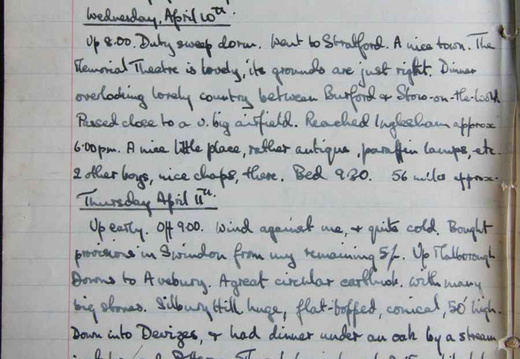 Wednesday, April 10th.
Up 8.00. Duty sweep dorm. Went to Stratford. A nice town. The
Memorial Theatre is lovely, its grounds are just right. Dinner
overlooking lovely country between Burford & Stow-on-the-Wold
Passed close to a v. big airfield. Reached Inglesham approx
6.00pm. A nice little place, rather antique, paraffin lamps, etc.
2 other boys, nice chaps, there. Bed 9.30. 56 miles approx.
Thursday April 11th.
Up early. Off 9.00. Wind against me, & quite cold. Bought
provisions in Swindon from my remaining 5/-. Up Malborough
Downs to Avebury. A great circular earthwk. with many
big stones. Silbury Hill huge, flat-topped, conical, 50' high.
Down into Devizes, & had dinner under an oak by a stream